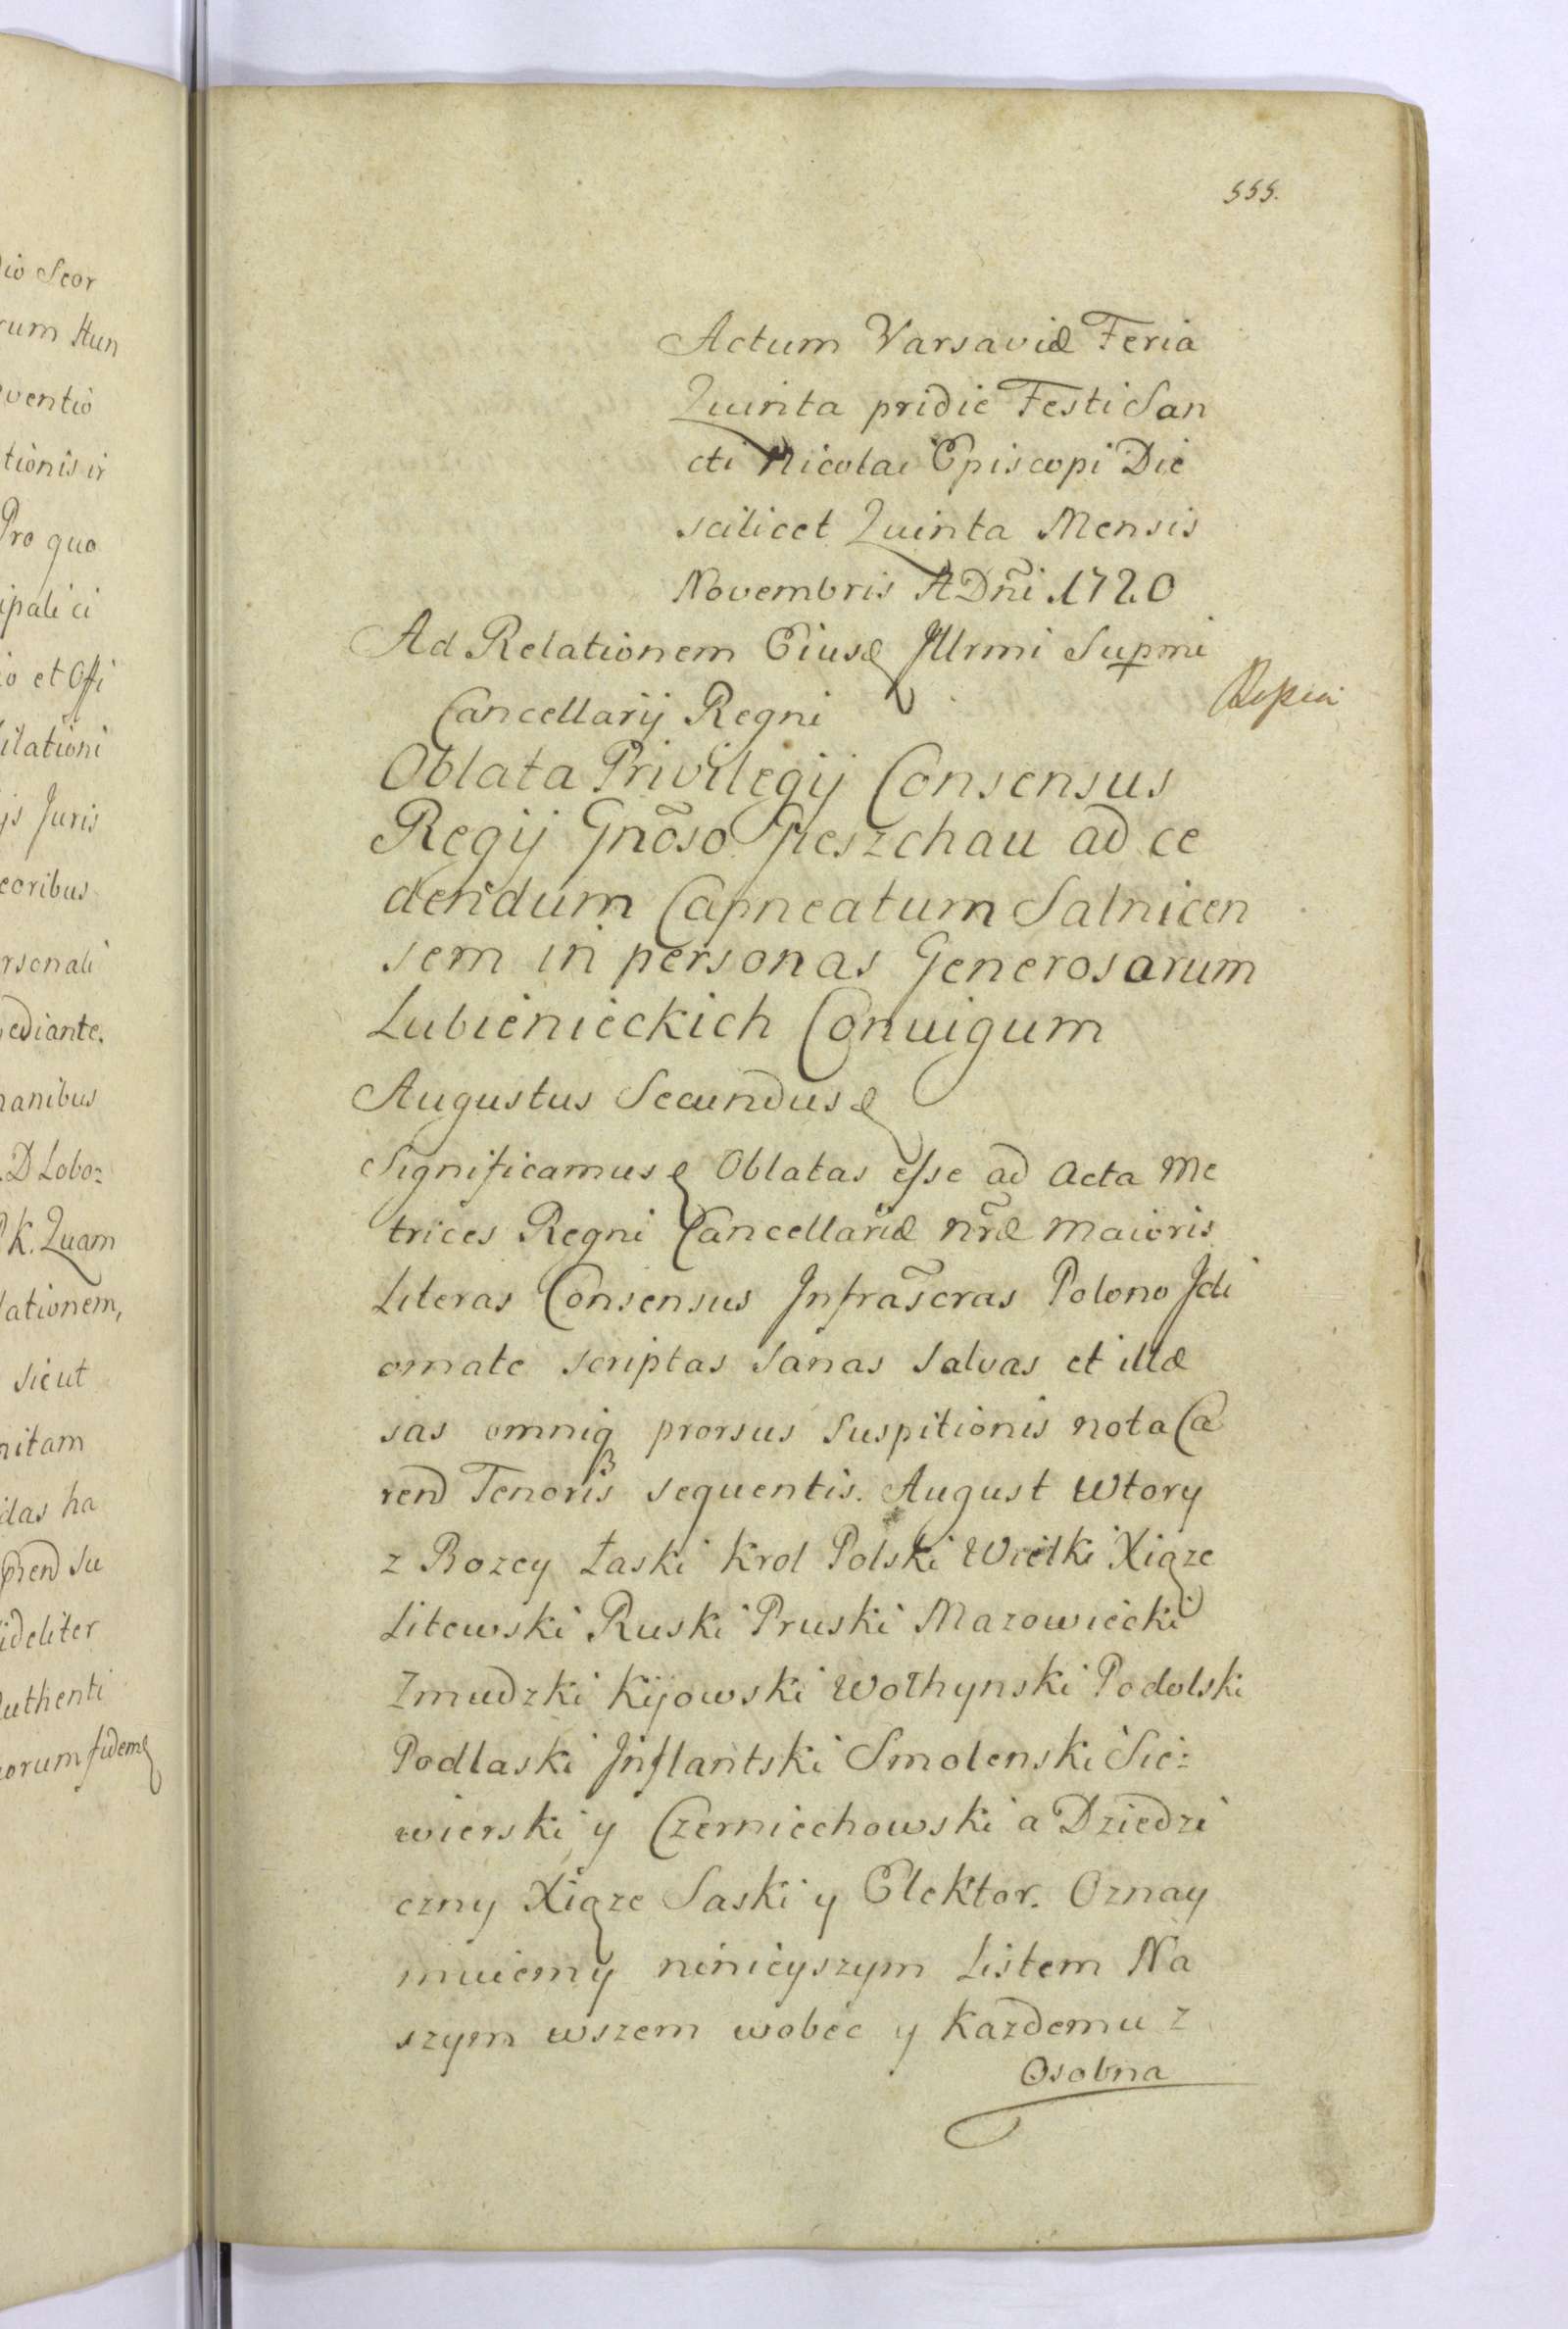 io Scor
rum Hun
ventio
tionis ir
Pro quo
ipali ci
io et Offi
ilationi
js Juris
coribus
rsonali
ediante.
anibus
D Lobo:
K. Quam
lationem,
sicut
nitam
das ha
ideliter
uthenti
orum fidem
555.
Actum Varsaviæ Feria
Quinta pridie Festi San
cti Nicolai Episcopi Die
scilicet Quinta Mensis
Novembris A Dñi 1720
Ad Relationem Eiusd Jllrmi Supmi
Cancellarij Regni
Oblata Privilegij Consensus
Regij Gnõso Peszchau ad ce
dendum Capneatum Salnicen
sem in personas Generosarum
Lubienieckich Conuigum
Augustus Secundus &
Significamus & Oblatas esse ad Acta Me
trices Regni Cancellariæ nr̃æ Maioris
Literas Consensus Jnfrãscras Polono Jdi
omate scriptas sanas salvas et illæ
sas omniq prorsus suspitionis nota Ca
rend Tenoris sequentis. August Wtory
z Bozey Łaski Krol Polski Wielki Xiąze
Litewski Ruski Pruski Mazowiecki
Zmudzki Kijowski Wołhynski Podolski
Podlaski Jnflantski Smolenski Sie:
wierski y Czerniechowski a Dziedzi
czny Xiąze Saski y Elektor. Oznay
muiemy ninieyszym Listem Na
szym wszem wobec y Kazdemu z
Osobna